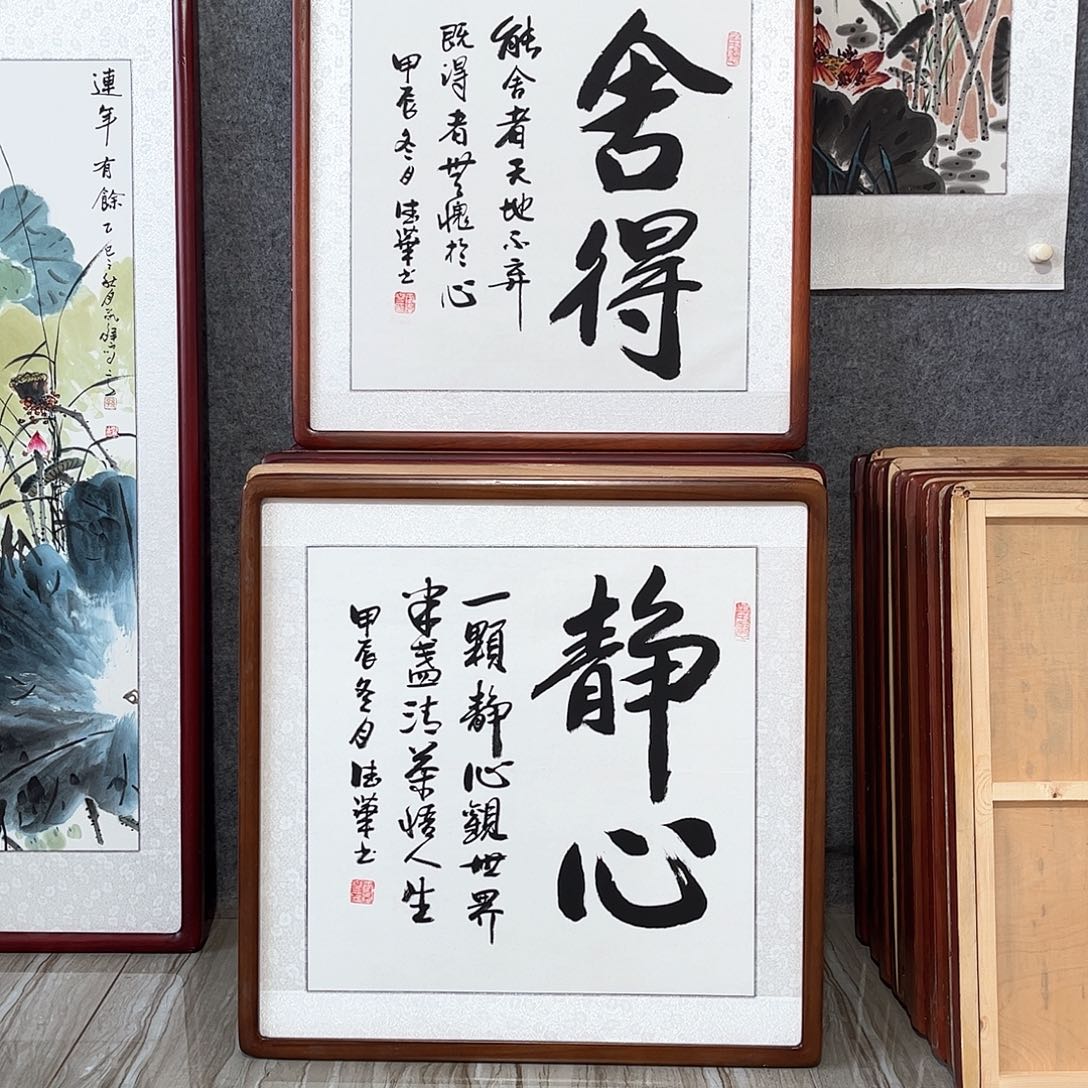 舍得
能舍者天地不弃
既得者無愧於心
甲辰冬月 德华书
静心
一顆静心觀世界
半盏清茶悟人生
甲辰冬月 德华书
連年有餘
乙巳秋月